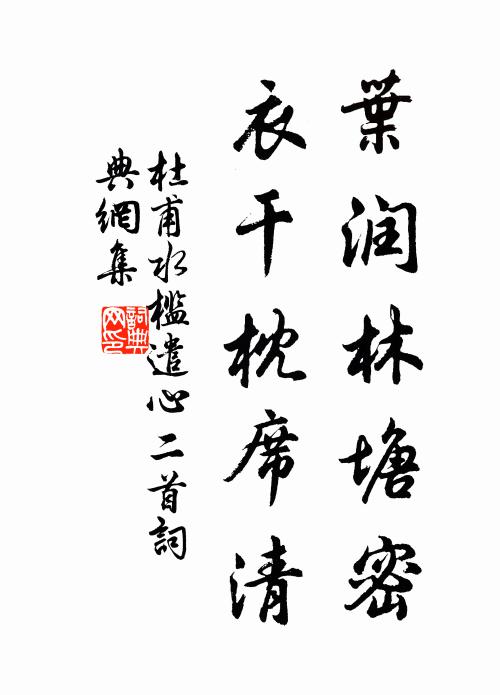 葉润林塘密
衣干枕席清
杜甫水檻遣心二首詞
典網集
詞典网印